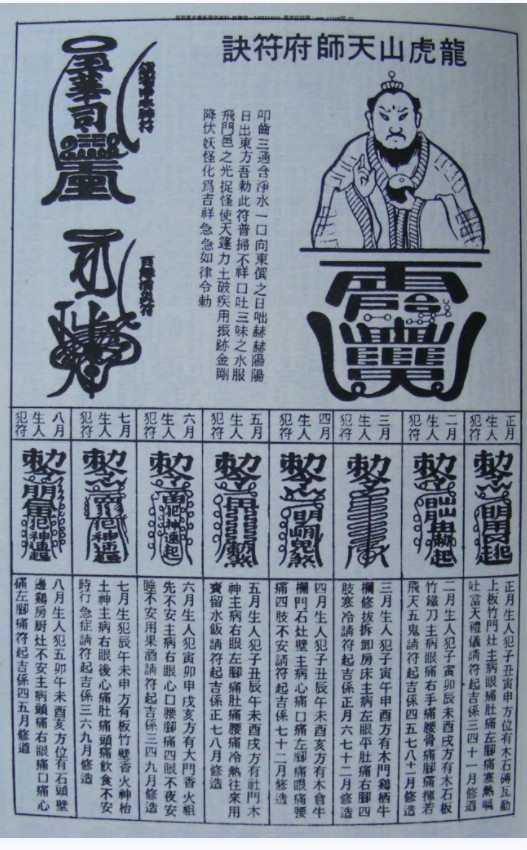 龍虎山天師府符訣
叩齒三通含淨水一口向東僎之曰咄赫赫陽陽
日出東方吾勅此符普掃不祥口吐三昧之水服
飛門邑之光捉怪使天蓬力士破疾用振跡金剛
降伏妖怪化爲吉祥急急如律令勅
正月
生人
犯符
二月
生人
犯符
三月
生人
犯符
四月
生人
犯符
五月
生人
犯符
六月
生人
犯符
七月
生人
犯符
八月
生人
犯符
正月生人犯子丑寅申方位有木石磚瓦動
上板竹門灶主病眼痛肚痛左腳痛寒熱嘔
吐當天禮儀請符起吉係三四十一月修造
二月生人犯子寅卯辰未酉戌方有木石板
竹鐵刀主病眼痛右手痛腰骨痛腳痛攞若
飛天五鬼請符起吉係四五七八十一月修造
三月生人犯子寅午申酉方有木門鷄栖牛
欄修拔拆卸房床主病左眼平肚痛右腳四
肢寒冷請符起吉係正月六七十二月修造
四月生人犯子丑辰午未酉亥方有木倉牛
欄門石灶壁主病心痛口痛左腳痛眼痛腰
痛四肢不安請符起吉係七十二月修造
五月生人犯子丑辰午未酉戌方有社門木
神主病右眼左腳痛肚痛腰痛冷熱往來用
賽留水飯請符起吉係正七八月修造
六月生人犯寅卯申戌亥方有大門香火祖
先不安主病右眼心口腰腳痛四眼不夜安
睡不安用果酒請符起吉係三四九月修造
七月生犯辰午未申方有板竹壁香火神枱
土神主病右眼後心痛肚痛頭痛飲食不安
時行急症請符起吉係三六九月修造
八月生人犯五卯午未酉亥方位有石頭壁
邊鷄房厨灶不安主病頭痛右眼痛口痛心
痛左腳痛符起吉係四五月修道